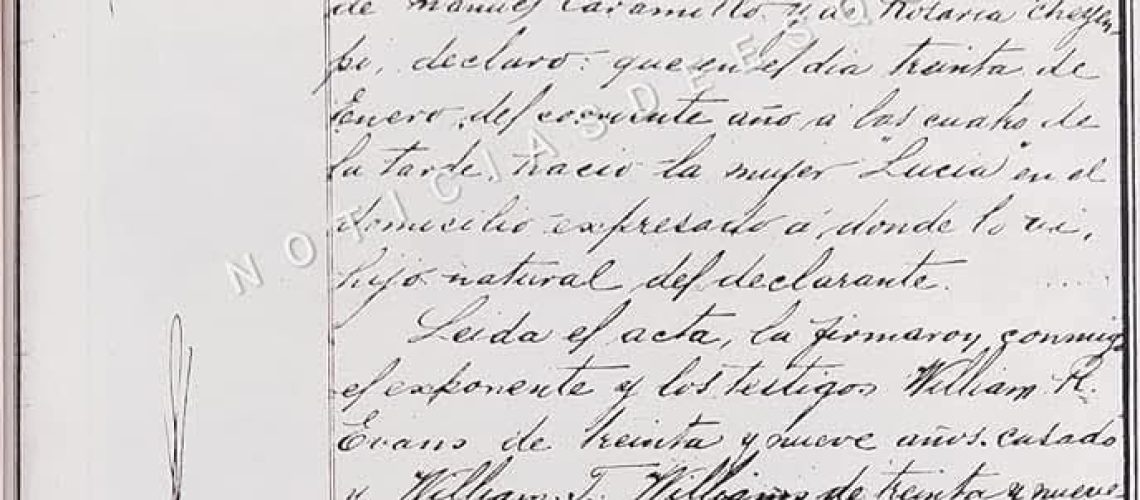 de Manuel Caramillo y de Rotaria Cheuen-
pi, declaro: que en el dia treinta de
Enero del corriente año a las cuatro de
la tarde, nació la mujer "Lucia" en el
domicilio expresado á donde lo vi,
hijo natural del declarante.
Leida el acta, la firmaron conmigo
el exponente y los testigos William R.
Evans de treinta y nueve años. casado
y William T. Williams de treinta y nueve
NOTICIAS DE ESQ